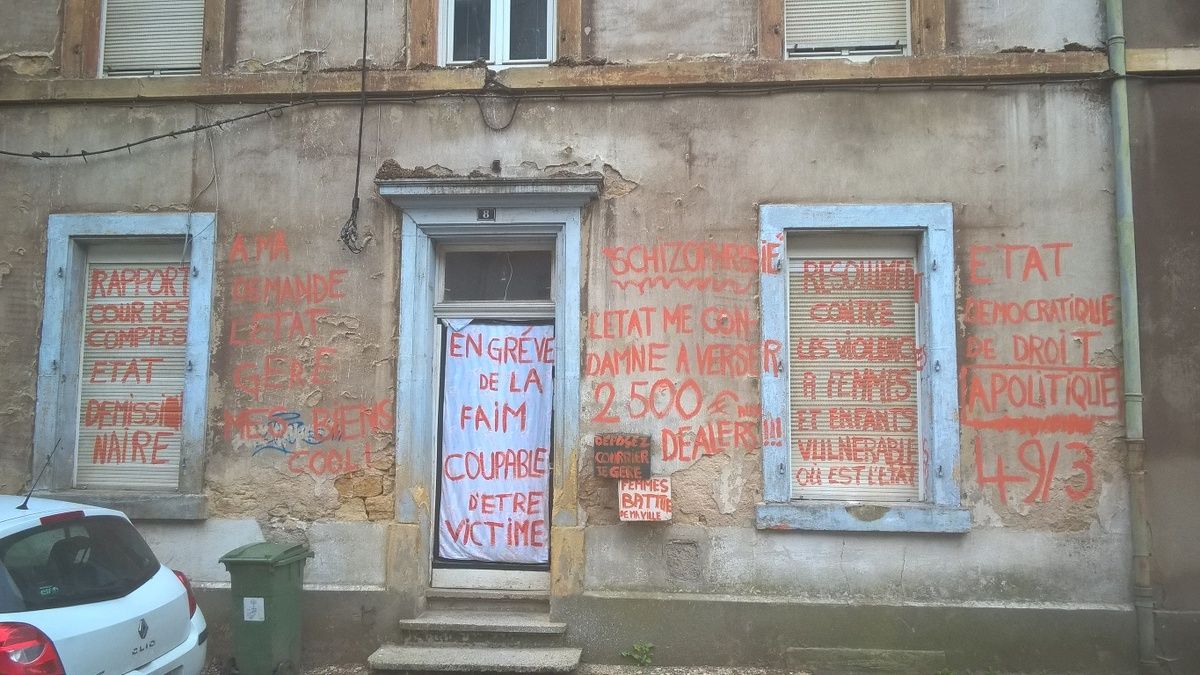 RAPPORT
COUR DES
COMPTES
ETAT
DEMISSI
NAIRE
A MA
DEMANDE
L'ETAT
GERE
MES BIENS
COOL!
8
EN GRÉVE
DE LA
FAIM
COUPABLE
D'ETRE
VICTIME
"SCHIZOPHRENIE"
L'ETAT ME CON-
DAMNE A VERSER
2 500 €
DEALERS!!!
DEPOSEZ
COURRIER
JE GERE
FEMMES
BATTUE
DE MA VILLE
RESOLUMENT
CONTRE
LES VIOLENCES
A FEMMES
ET ENFANTS
VULNERABLES
OÙ EST L'ETAT
ETAT
DEMOCRATIQUE
DE DROIT
APOLITIQUE
49/3
CLIO